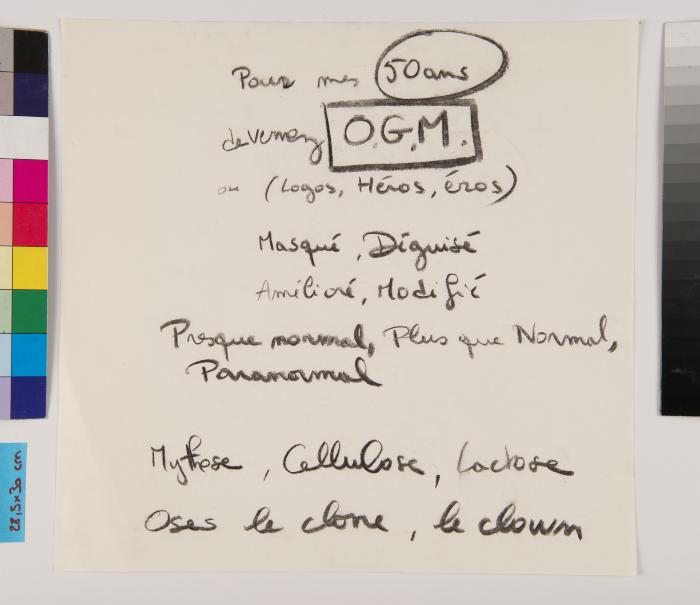 Pour mes 50 ans
devenez O.G.M.
ou (Logos, Héros, éros)
Masqué, Déguisé
Amélioré, Modifié
Presque normal, Plus que Normal,
Paranormal
Mythose, Cellulose, Lactose
Oses le clone, le clown
28,5x30 cm